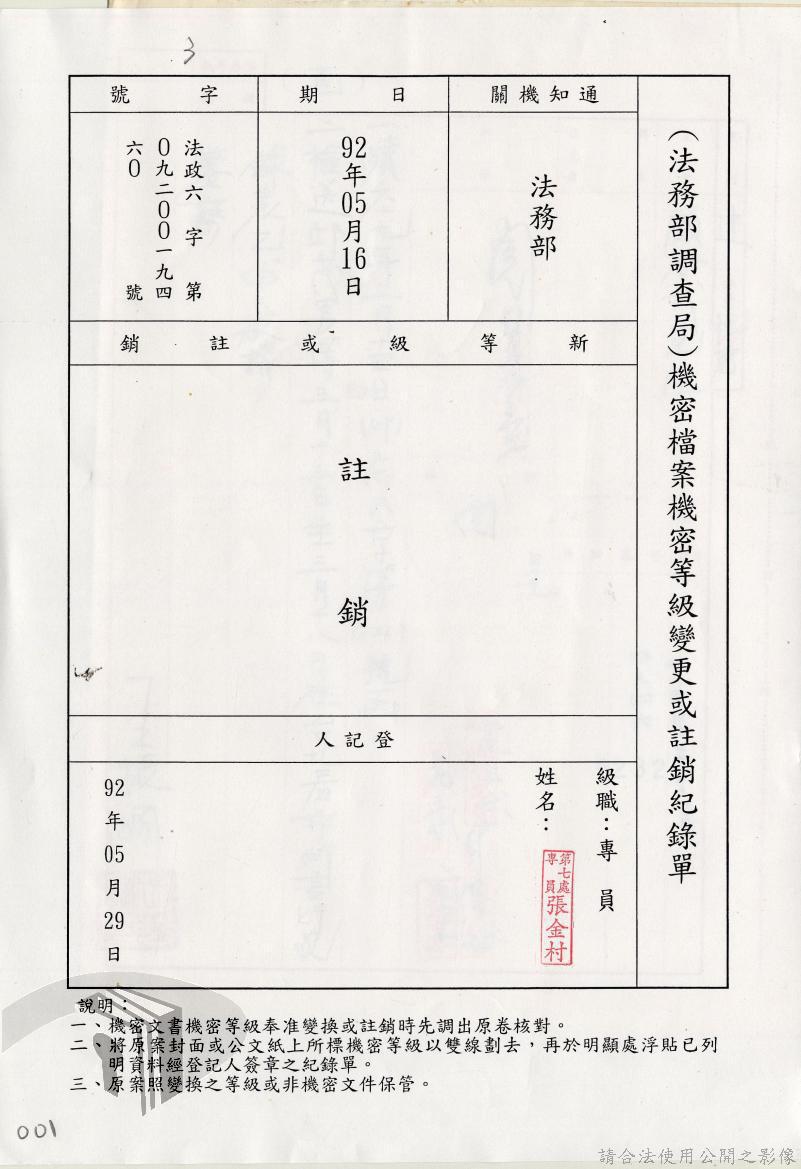 3
（法務部調查局）機密檔案機密等級變更或註銷紀錄單
通知機關
法務部
日期
92年05月16日
字號
法政六字第
0九二00一九四
六0號
新等級或註銷
註銷
登記人
級職：專員
姓名：
第七處
專員
張金村
92年05月29日
說明：
一、機密文書機密等級奉准變換或註銷時先調出原卷核對。
二、將原案封面或公文紙上所標機密等級以雙線劃去，再於明顯處浮貼已列
明資料經登記人簽章之紀錄單。
三、原案照變換之等級或非機密文件保管。
001
請合法使用公開之影像